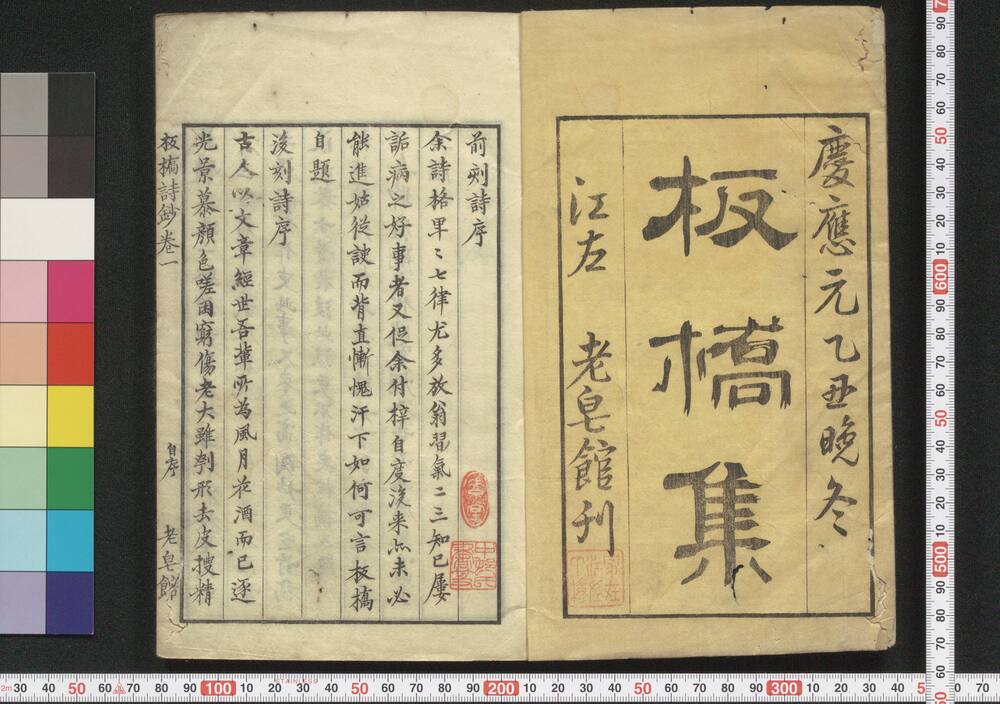 慶應元乙丑晚冬
板橋集
江左 老皂館刊
前刻詩序
余詩格卑卑七律尤多放翁習氣二三知已屢
詬病之好事者又促余付梓自度後来亦未必
能進姑從諛而背直慚愧汗下如何可言板橋
自題
後刻詩序
古人以文章經世吾輩所為風月花酒而已逐
光景慕顏色嗟困窮傷老大雖刳形去皮搜精
板橋詩鈔卷一
自序
老皂館